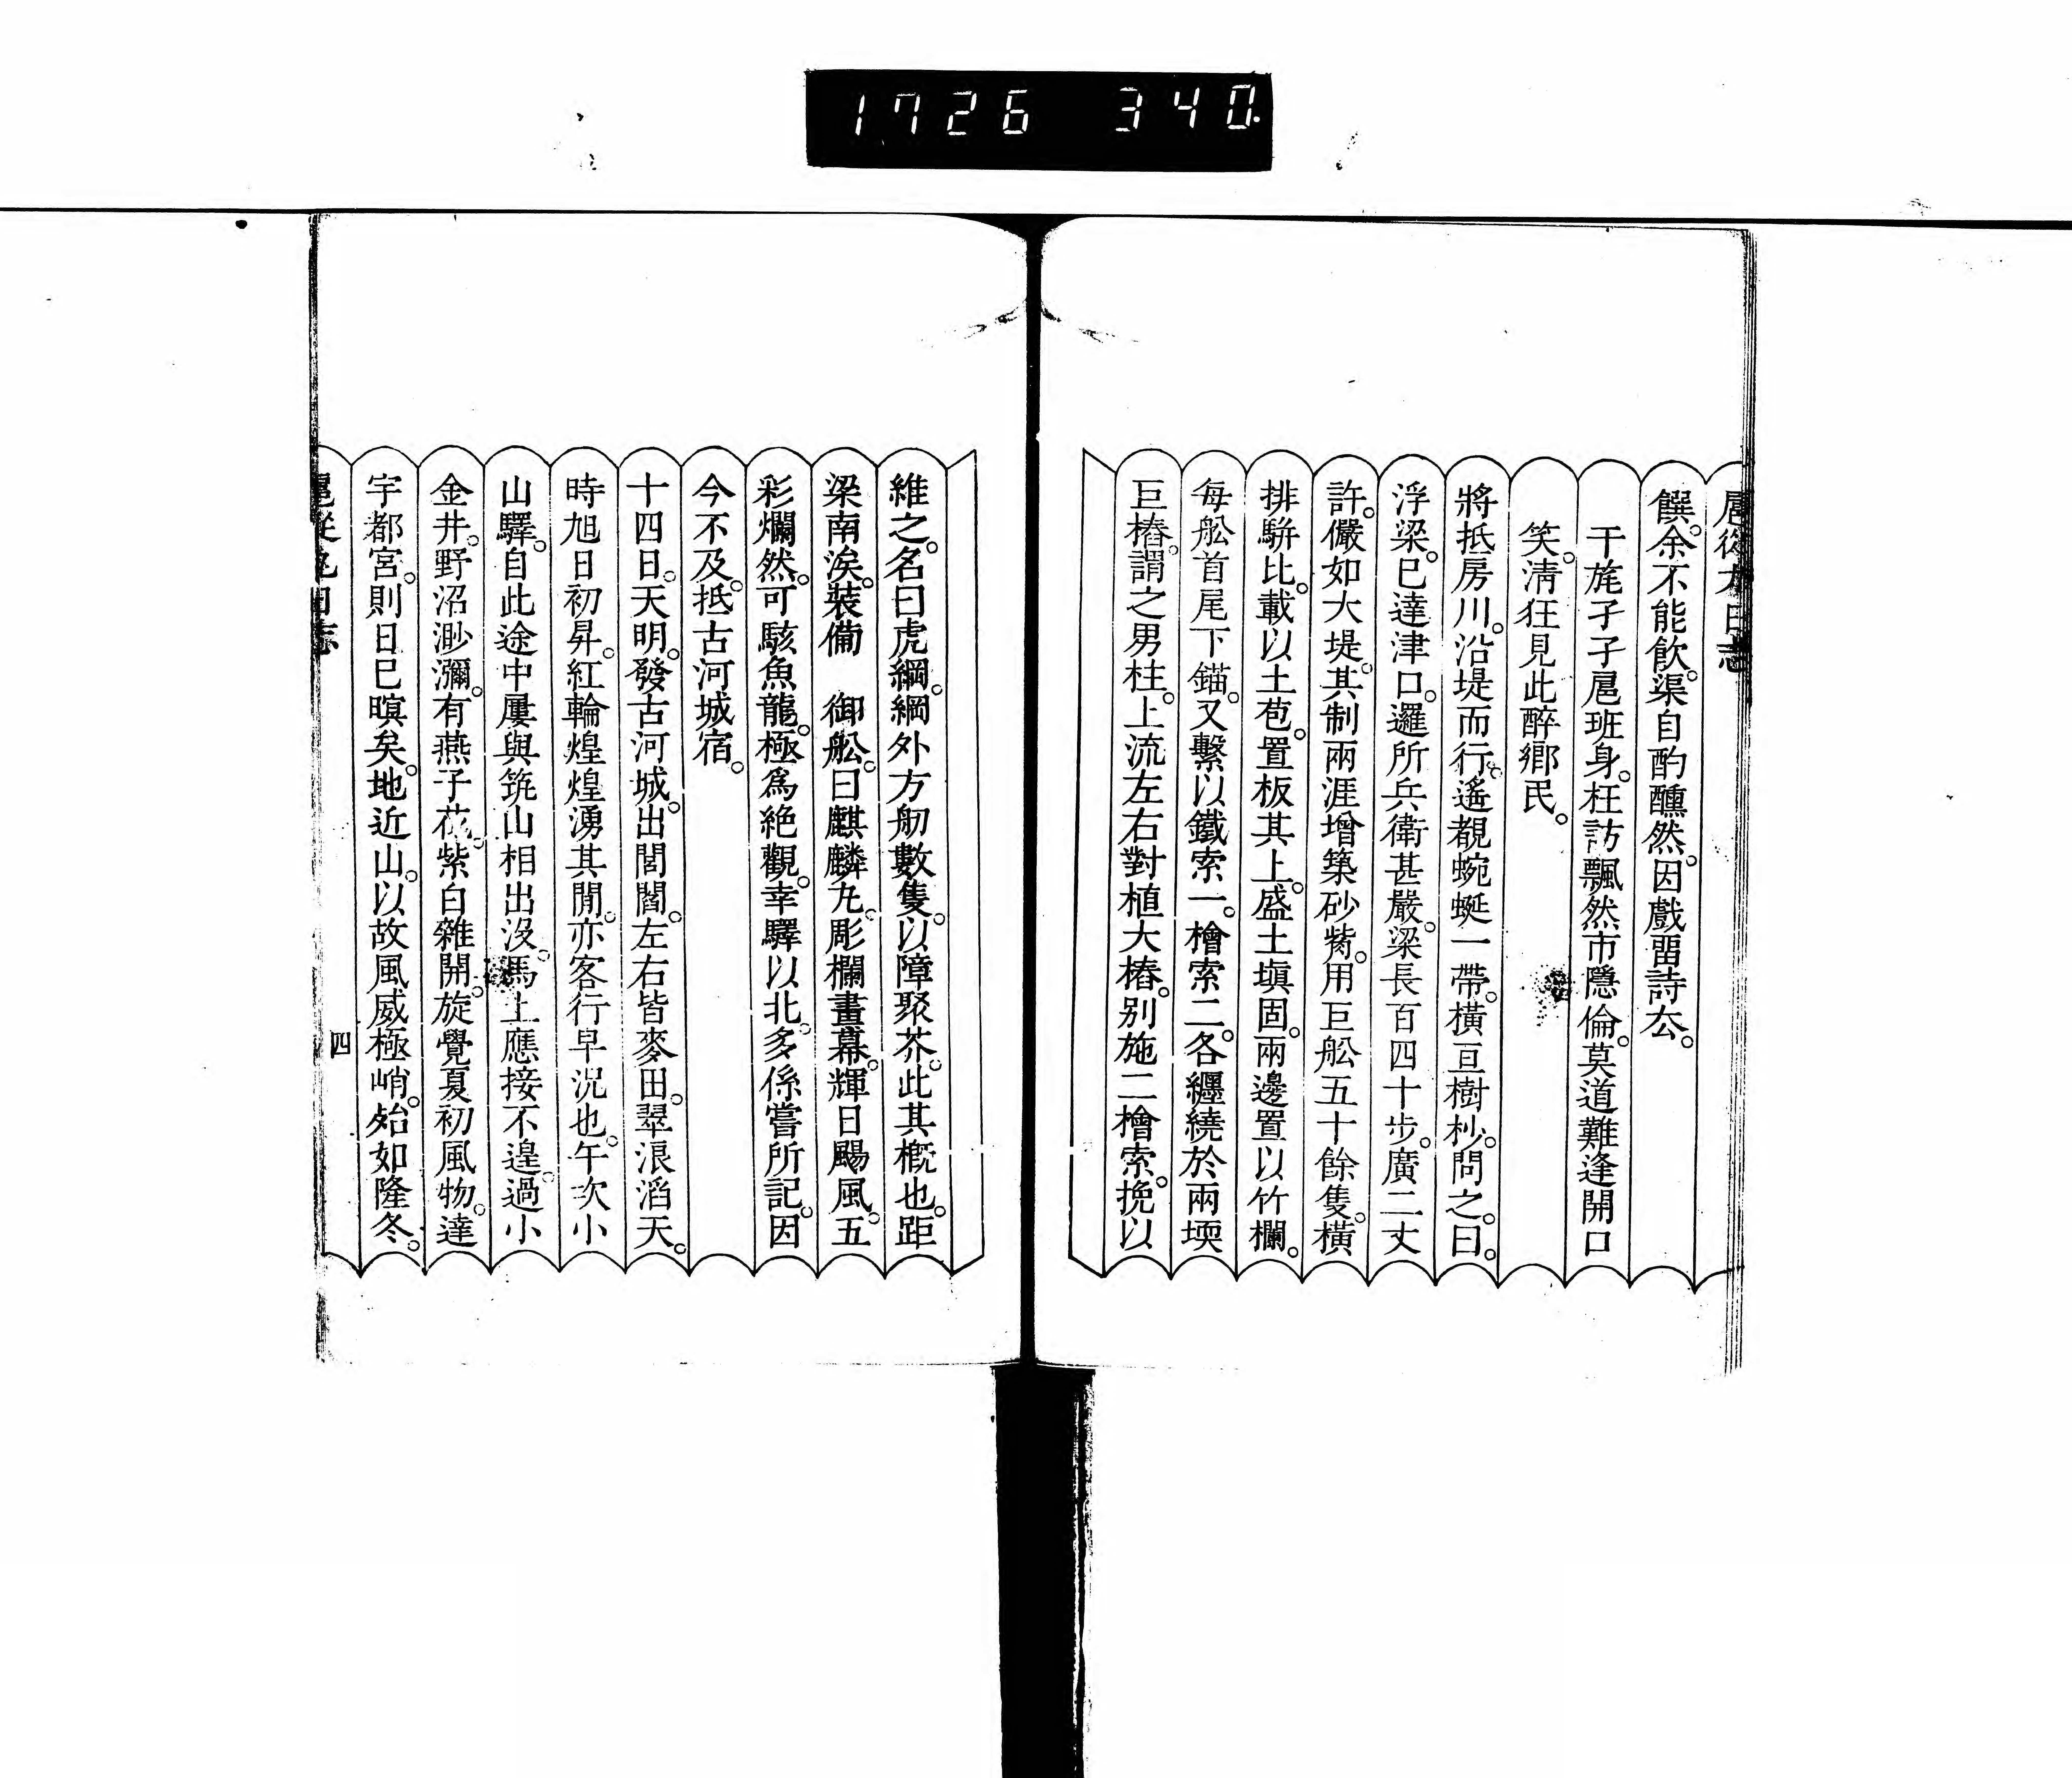 1726 340.
饌。余不能飲。渠自酌醺然。因戲畱詩厺。
干旄孑孑扈班身。枉訪飄然市隱倫。莫道難逢開口
笑。淸狂見此醉鄕民。
將抵房川。沿堤而行。遙覩蜿蜒一帶。橫亘樹杪。問之。曰。
浮梁。已達津口。邏所兵衛甚嚴。梁長百四十步。廣二丈
許。儼如大堤。其制兩涯增築砂觜。用巨舩五十餘隻。橫
排駢比。載以土苞。置板其上。盛土塡固。兩邊置以竹欄。
每舩首尾下錨。又繫以鐵索一。檜索二。各纒繞於兩堧
巨樁。謂之男柱。上流左右對植大樁。別施二檜索。挽以
維之。名曰虎綱。綱外方舠數隻。以障聚芥。此其槪也。距
梁南涘。裝備　御舩。曰麒麟丸。彫欄畫幕。輝日颺風。五
彩爛然。可駭魚龍。極爲絶觀。幸驛以北。多係嘗所記。因
今不及。抵古河城宿。
十四日。天明。發古河城。出閭閻。左右皆麥田。翠浪滔天。
時旭日初昇。紅輪煌煌湧其閒。亦客行早況也。午次小
山驛。自此途中屢與筑山相出沒。馬上應接不遑。過小
金井。野沼渺瀰。有燕子花。紫白雜開。旋覺夏初風物。達
宇都宮。則日已暝矣。地近山。以故風威極峭。殆如隆冬。
四